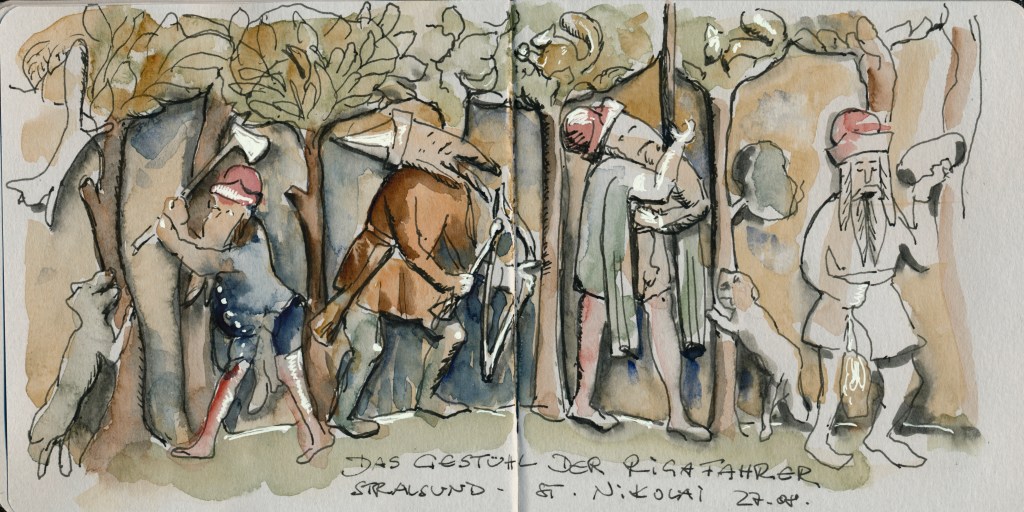 DAS GESTÜHL DER RIGAFAHRER
STRALSUND - ST. NIKOLAI 27.08.